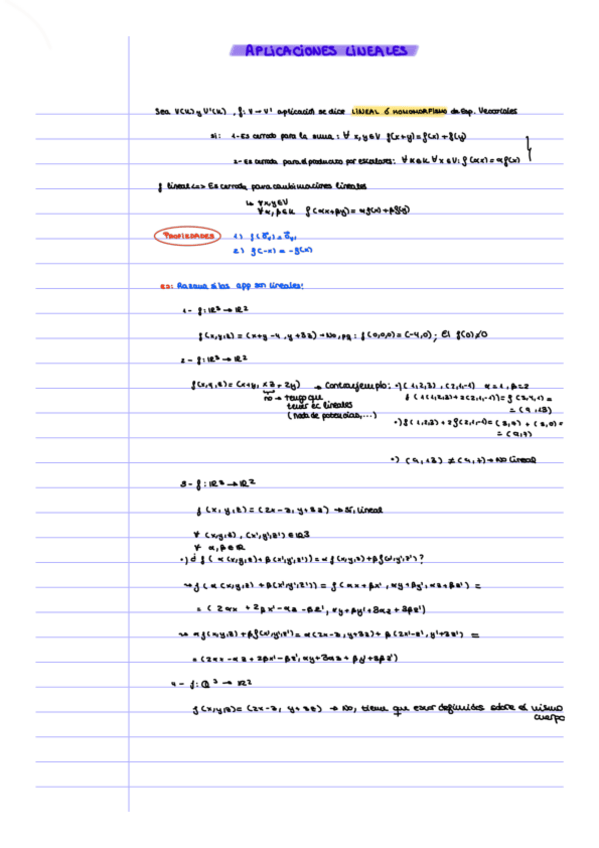 APLICACIONES LINEALES
Sea V(K) y V'(K), f: V → V' aplicación se dice LINEAL ó HOMOMORFISMO de Esp. Vectoriales
si: 1-Es cerrado para la suma: ∀ x,y ∈ V f(x+y)=f(x)+f(y)
2-Es cerrada para el producto por escalares: ∀ α∈K ∀ x∈V: f(αx)=αf(x)
f lineal <=> Es cerrada para combinaciones lineales
↳ ∀x,y∈V
∀α,β∈K f(αx+βy)=αf(x)+βf(y)
PROPIEDADES 1) f(0v)=0v'
2) f(-x)=-f(x)
Ej: Razona si las app son lineales:
1- f: IR³ → IR²
f(x,y,z)=(x+y-4, y+3z) → No, pq: f(0,0,0)=(-4,0); El f(0)≠0
2- f: IR³ → IR²
f(x,y,z)=(x+y, xz+2y) → Contraejemplo: •) (1,2,3), (2,1,-1) α=1, β=2
no → tengo que
tener ec lineales
(nada de potencias,...)
f(1(1,2,3)+2(2,1,-1))=f(5,4,1)=
=(9,13)
•) f(1,2,3)+2f(2,1,-1)=(3,7)+(6,0)=
=(9,7)
•) (9,13) ≠ (9,7) → No lineal
3- f: IR³ → IR²
f(x,y,z)=(2x-z, y+3z) → Sí, lineal
∀ (x,y,z), (x',y',z') ∈ IR3
∀ α,β ∈ IR
•) ¿ f(α(x,y,z)+β(x',y',z'))=αf(x,y,z)+βf(x',y',z')?
↪ f(α(x,y,z)+β(x',y',z'))=f(αx+βx', αy+βy', αz+βz')=
=(2αx+2βx'-αz-βz', αy+βy'+3αz+3βz')
↪ αf(x,y,z)+βf(x',y',z')=α(2x-z, y+3z)+β(2x'-z', y'+3z')=
=(2αx-αz+2βx'-βz', αy+3αz+βy'+3βz')
4- f: Q³ → IR²
f(x,y,z)=(2x-z, y+3z) → No, tienen que estar definidos sobre el mismo
cuerpo